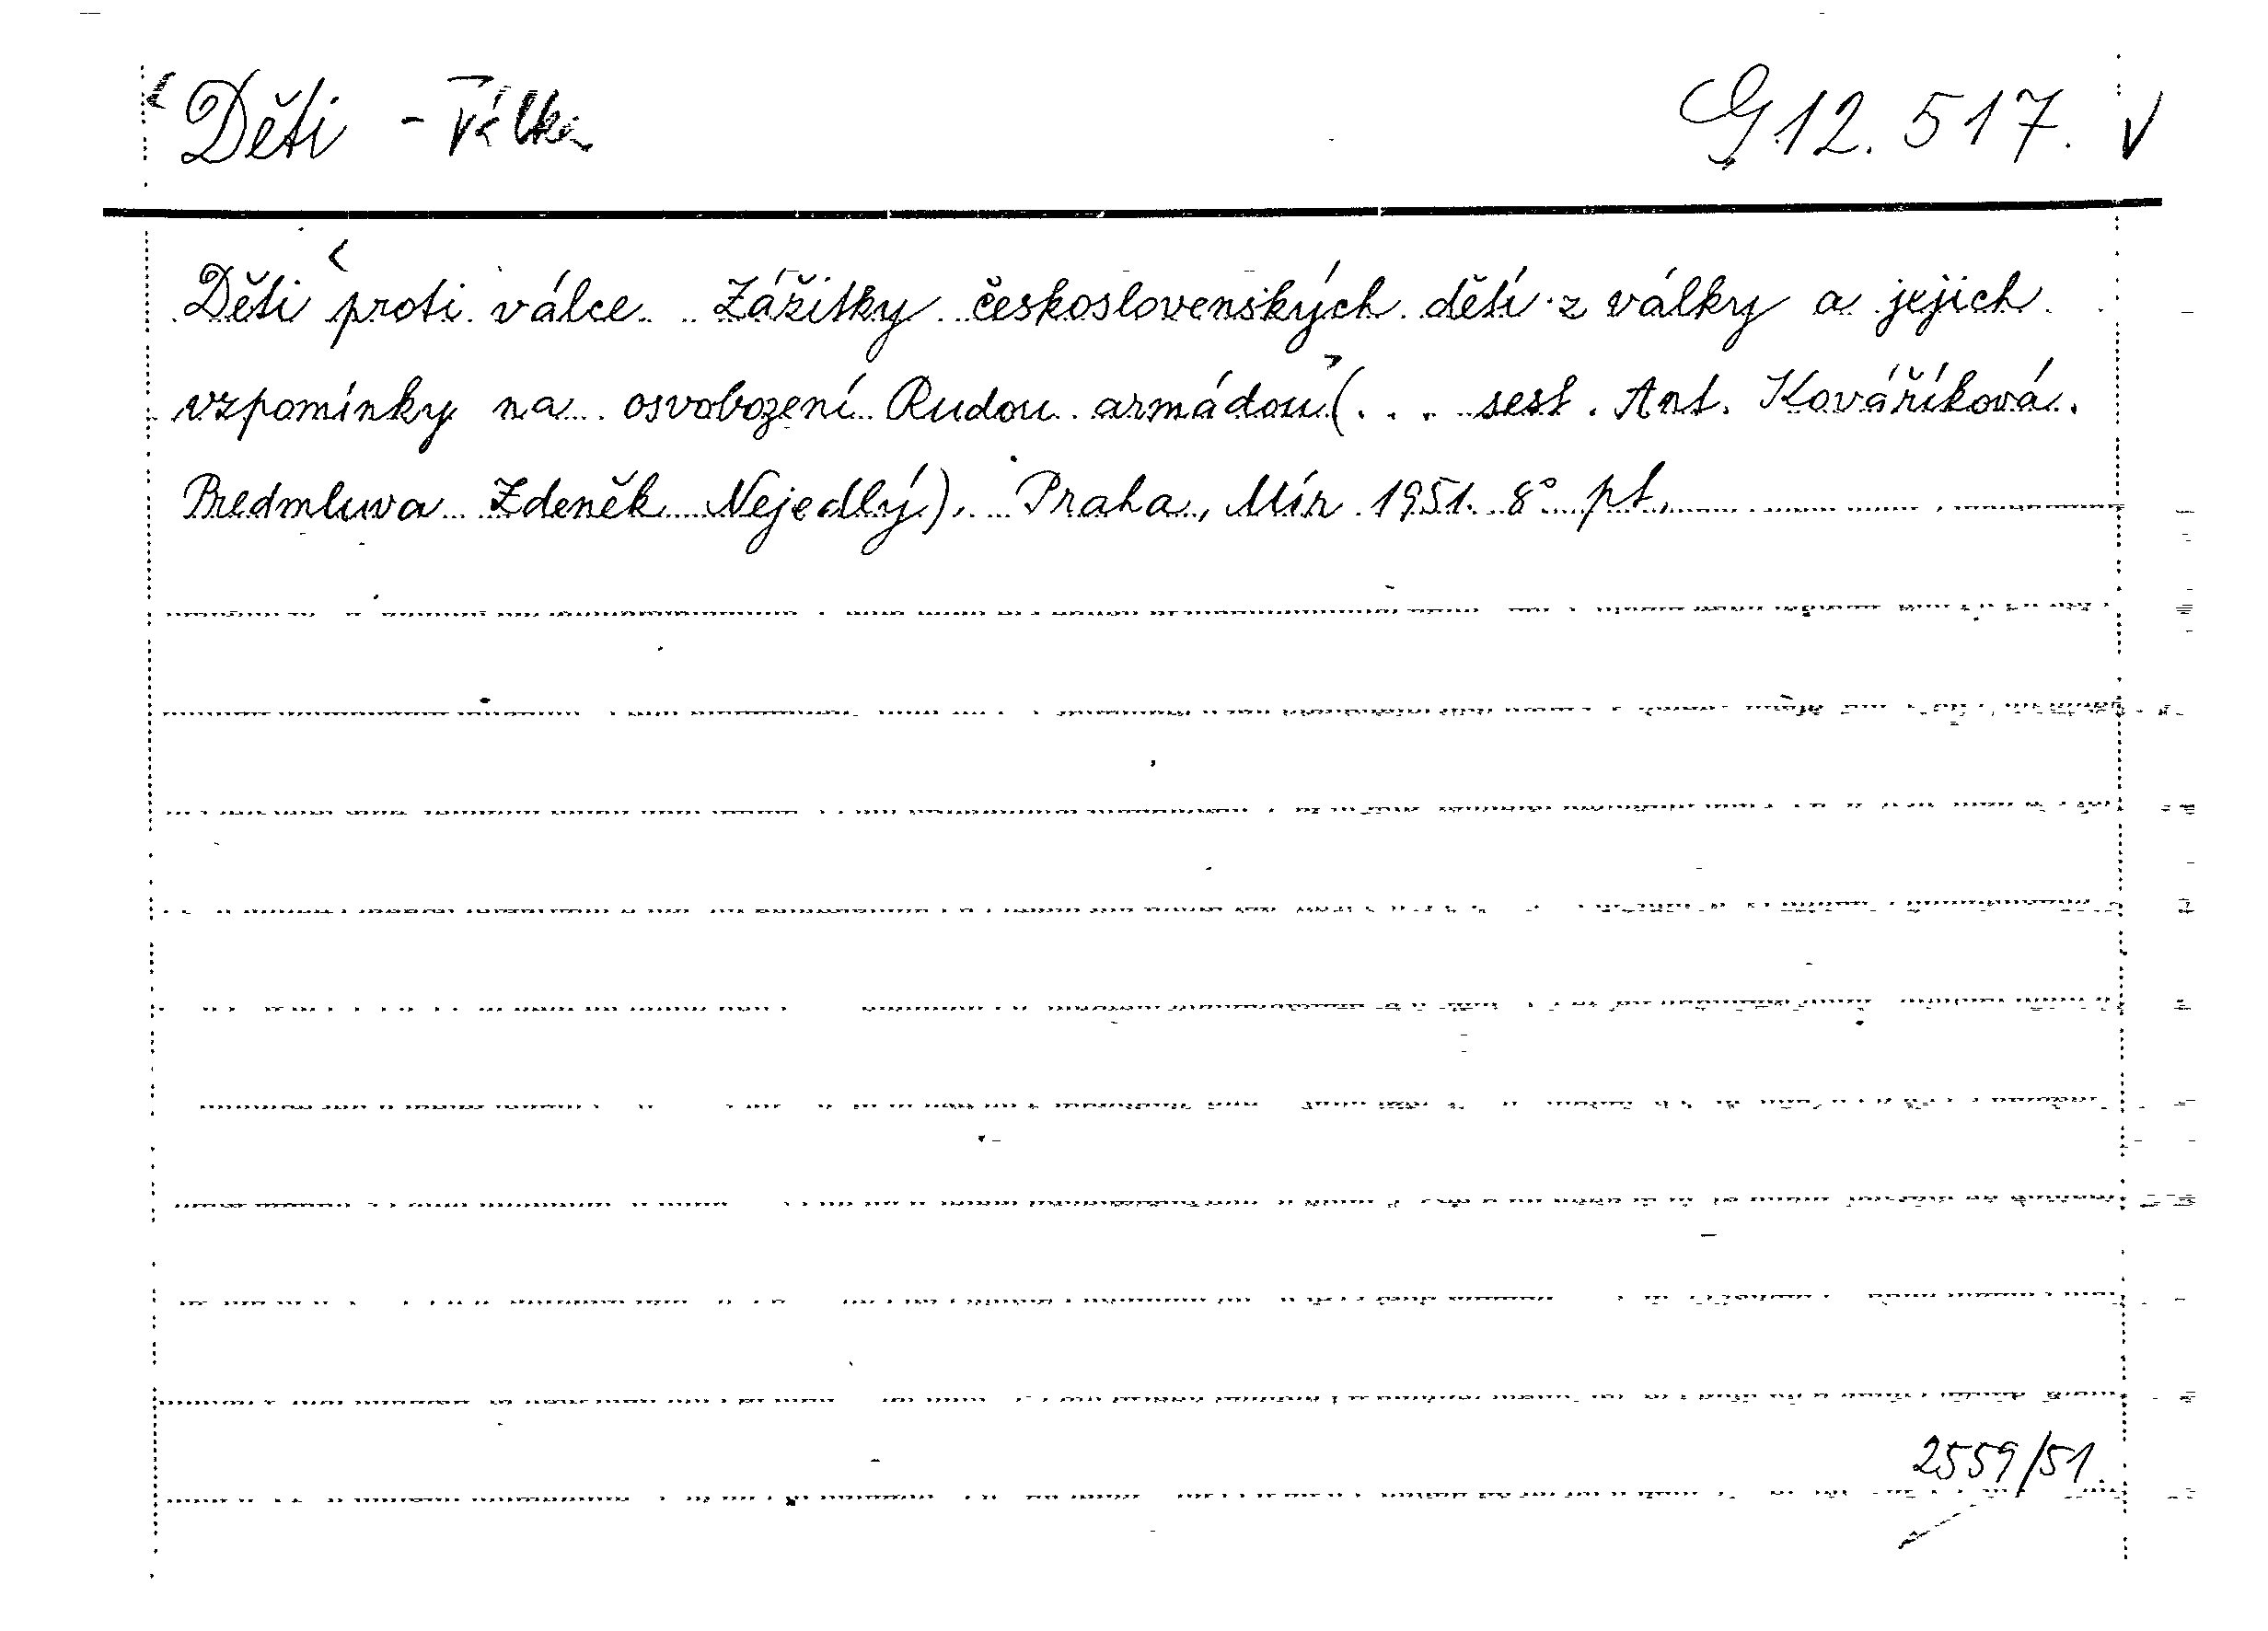 Děti - Válka G 12.517. V
Děti proti válce. Zážitky československých dětí z války a jejich
vzpomínky na osvobození Rudou armádou (... sest. Ant. Kováříková.
Předmluva Zdeněk Nejedlý). Praha, Mír 1951. 8° pt.
2559/51.